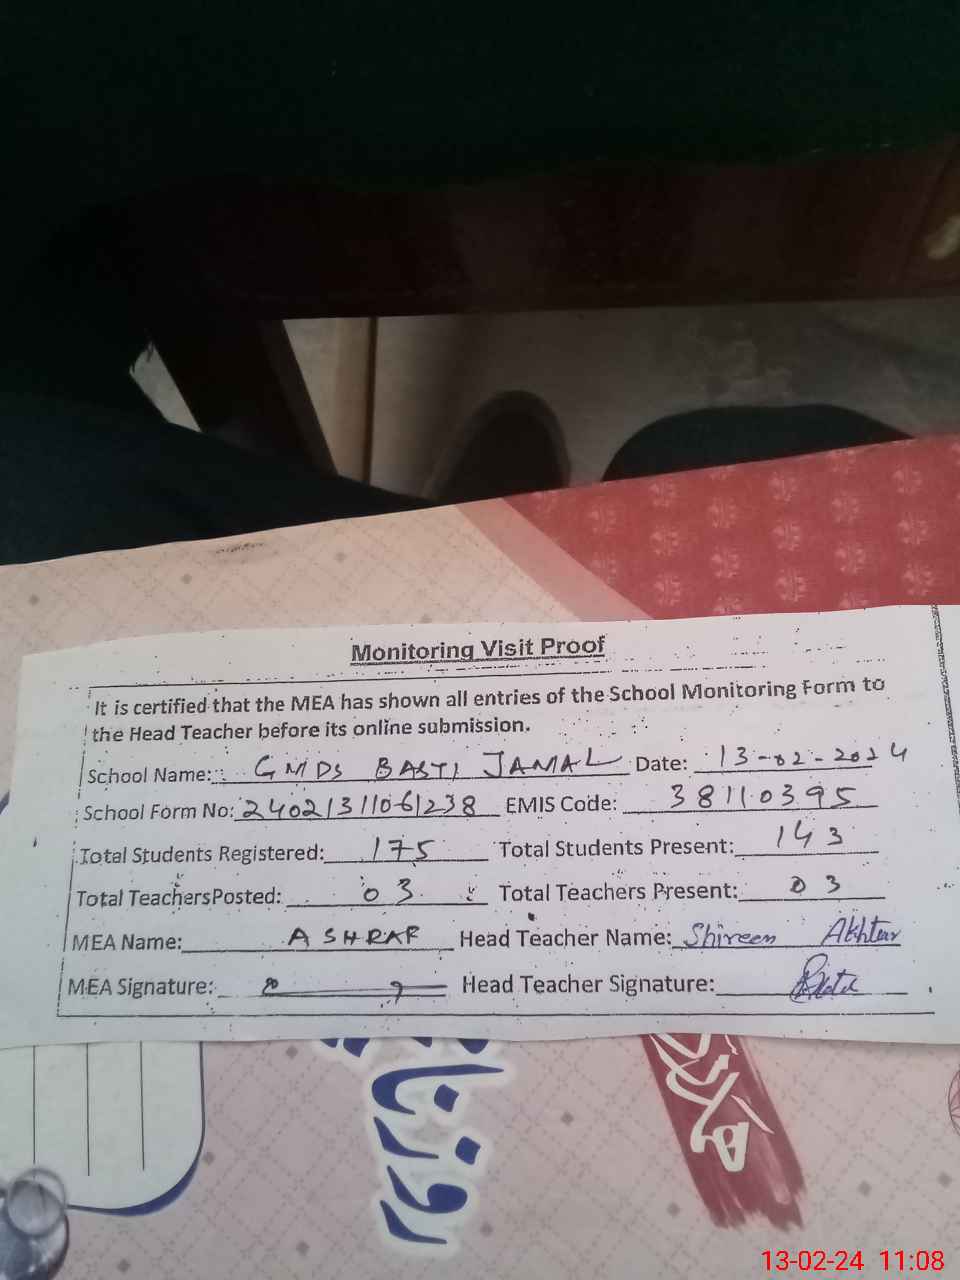 Monitoring Visit Proof
It is certified that the MEA has shown all entries of the School Monitoring Form to
the Head Teacher before its online submission.
School Name: GMDS BASTI JAMAL Date: 13-02-2024
School Form No: 24021311061238 EMIS Code: 38110395
Total Students Registered: 175 Total Students Present: 143
Total TeachersPosted: 03 Total Teachers Present: 03
MEA Name: ASHRAF Head Teacher Name: Shireen Akhtar
MEA Signature: Head Teacher Signature:
روزنا
13-02-24 11:08